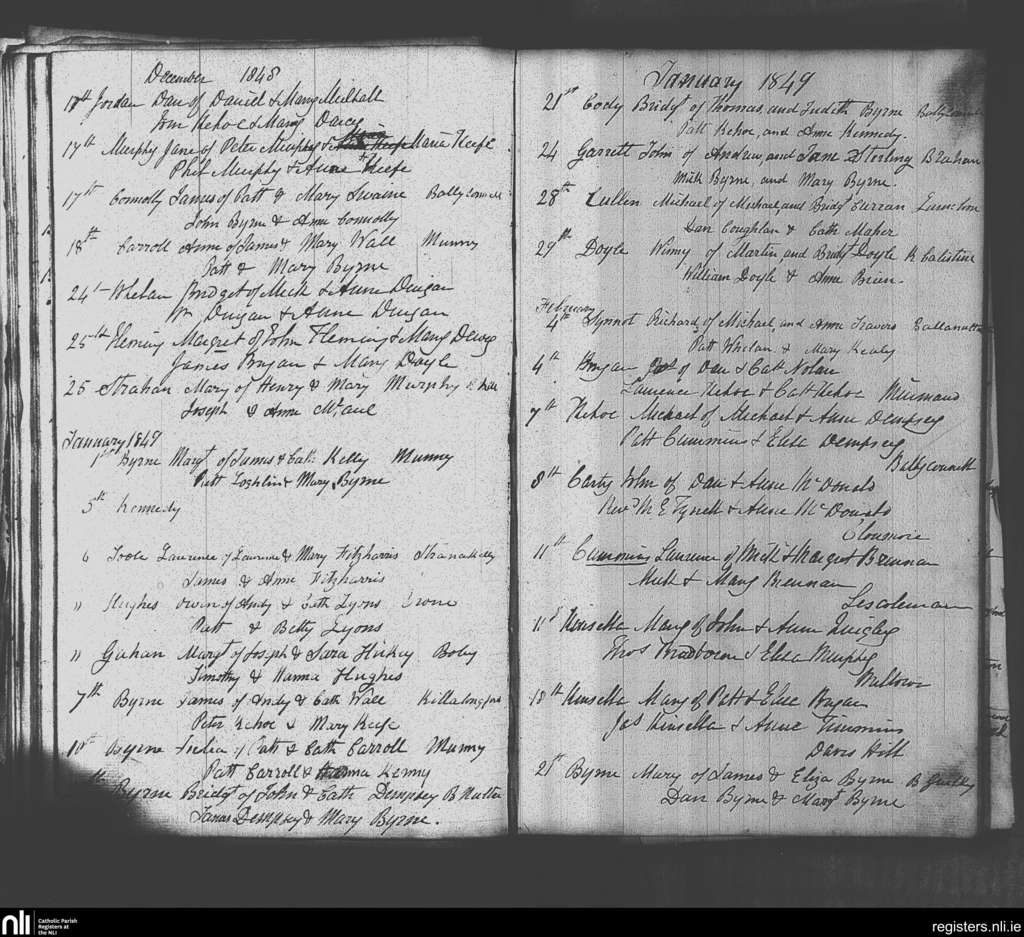 December 1848
17th Jordan Dan of Daniel & Mary Mulhall
John Kehoe & Mary Darcy
17th Murphy Jane of Peter Murphy & Maria Keefe
Phil Murphy & Anne Keefe
17th Connolly James of Patt & Mary Swaine Ballyconnell
John Byrne & Anne Connolly
18th Carroll Anne of James & Mary Wall Munny
Patt & Mary Byrne
24th Whelan Bridget of Mick & Anne Duigan
Wm Duigan & Anne Duigan
25th Fleming Margret of John Fleming & Mary Darcy
James Bryan & Mary Doyle
25 Strahan Mary of Henry & Mary Murphy
Joseph & Anne McCaul
January 1849
1st Byrne Margt of James & Cath Kelly Munny
Patt Loghlin & Mary Byrne
5th Kennedy
6 Toole Laurence of Laurence & Mary Fitzharris Stranakelly
James & Anne Fitzharris
" Hughes Owen of Andy & Cath Lyons Crone
Patt & Betty Lyons
" Gahan Margt of Joseph & Sara Hickey Boley
Timothy & Hanna Hughes
7th Byrne James of Andy & Cath Wall Killalongford
Peter Kehoe & Mary Keefe
10th Byrne Julia of Patt & Cath Carroll Munny
Patt Carroll & Hanna Kenny
th Byrne Bridgt of John & Cath Dempsey B Nultα
James Dempsey & Mary Byrne.
January 1849
21st Cody Bridgt of Thomas, and Judith Byrne
Patt Kehoe, and Anne Kennedy.
24 Garrett John of Andrew, and Jane Sterling
Mick Byrne, and Mary Byrne.
28th Cullen Michael of Michael, and Bridgt Curran
Dan Coughlan & Cath Maher
29th Doyle Winny of Martin, and Bridt Doyle
William Doyle & Anne Brien.
February
4th Synnot Richard, of Michael, and Anne Travers
Patt Whelan & Mary Kealy
4th Bryan Jas of Dan & Cath Nolan
Laurence Kehoe & Cath Kehoe
7th Kehoe Michael of Michael & Anne Dempsey
Patt Cummins & Eliza Dempsey
Ballyconnell
8th Carty John of Dan & Anne McDonald
Revd M E Tyrrell & Anne McDonald
11th Cummins Laurence of Mick & Margret Brennan
Mick & Mary Brennan
Lescoleman
11th Kinsella Mary of John & Anne Quigley
Thos & Eliza Murphy
18th Kinsella Mary of Patt & Elie Bryan
Jas Kinsella & Anne Timmins
Davis Hill
21st Byrne Mary of James & Eliza Byrne
Dan Byrne & Margt Byrne
nli Catholic Parish
Registers at
the NLI
registers.nli.ie